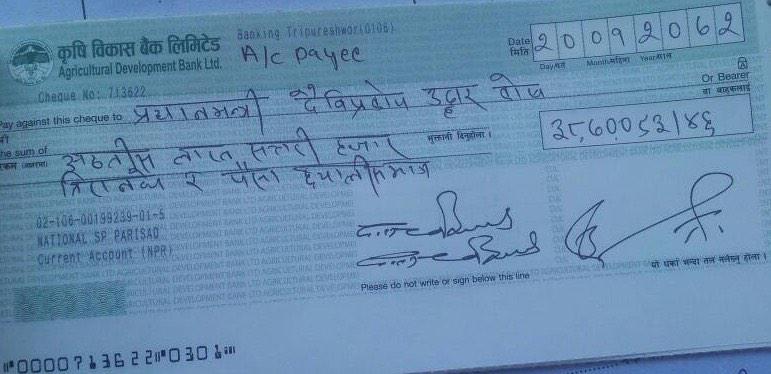 कृषि विकास बैंक लिमिटेड
Agricultural Development Bank Ltd.
Banking Tripureshwor(0106)
A/c payee
Date मिति 20092062
Day/गते Month/महिना Year/साल
Cheque No: 713622
Or Bearer
वा वाहकलाई
Pay against this cheque to प्रधानमन्त्री दैविप्रकोप उद्दार कोष
he sum of भुक्तानी दिनुहोला ।
रकम (अक्षरमा) लाख सत्तरी हजार
पैसा मात्र
02-106-00199239-01-5
NATIONAL SP PARISAD
Current Account (NPR)
Please do not write or sign below this line
यो धर्का भन्दा तल नलेख्नु होला ।
⑈0000713622⑈0301⑈